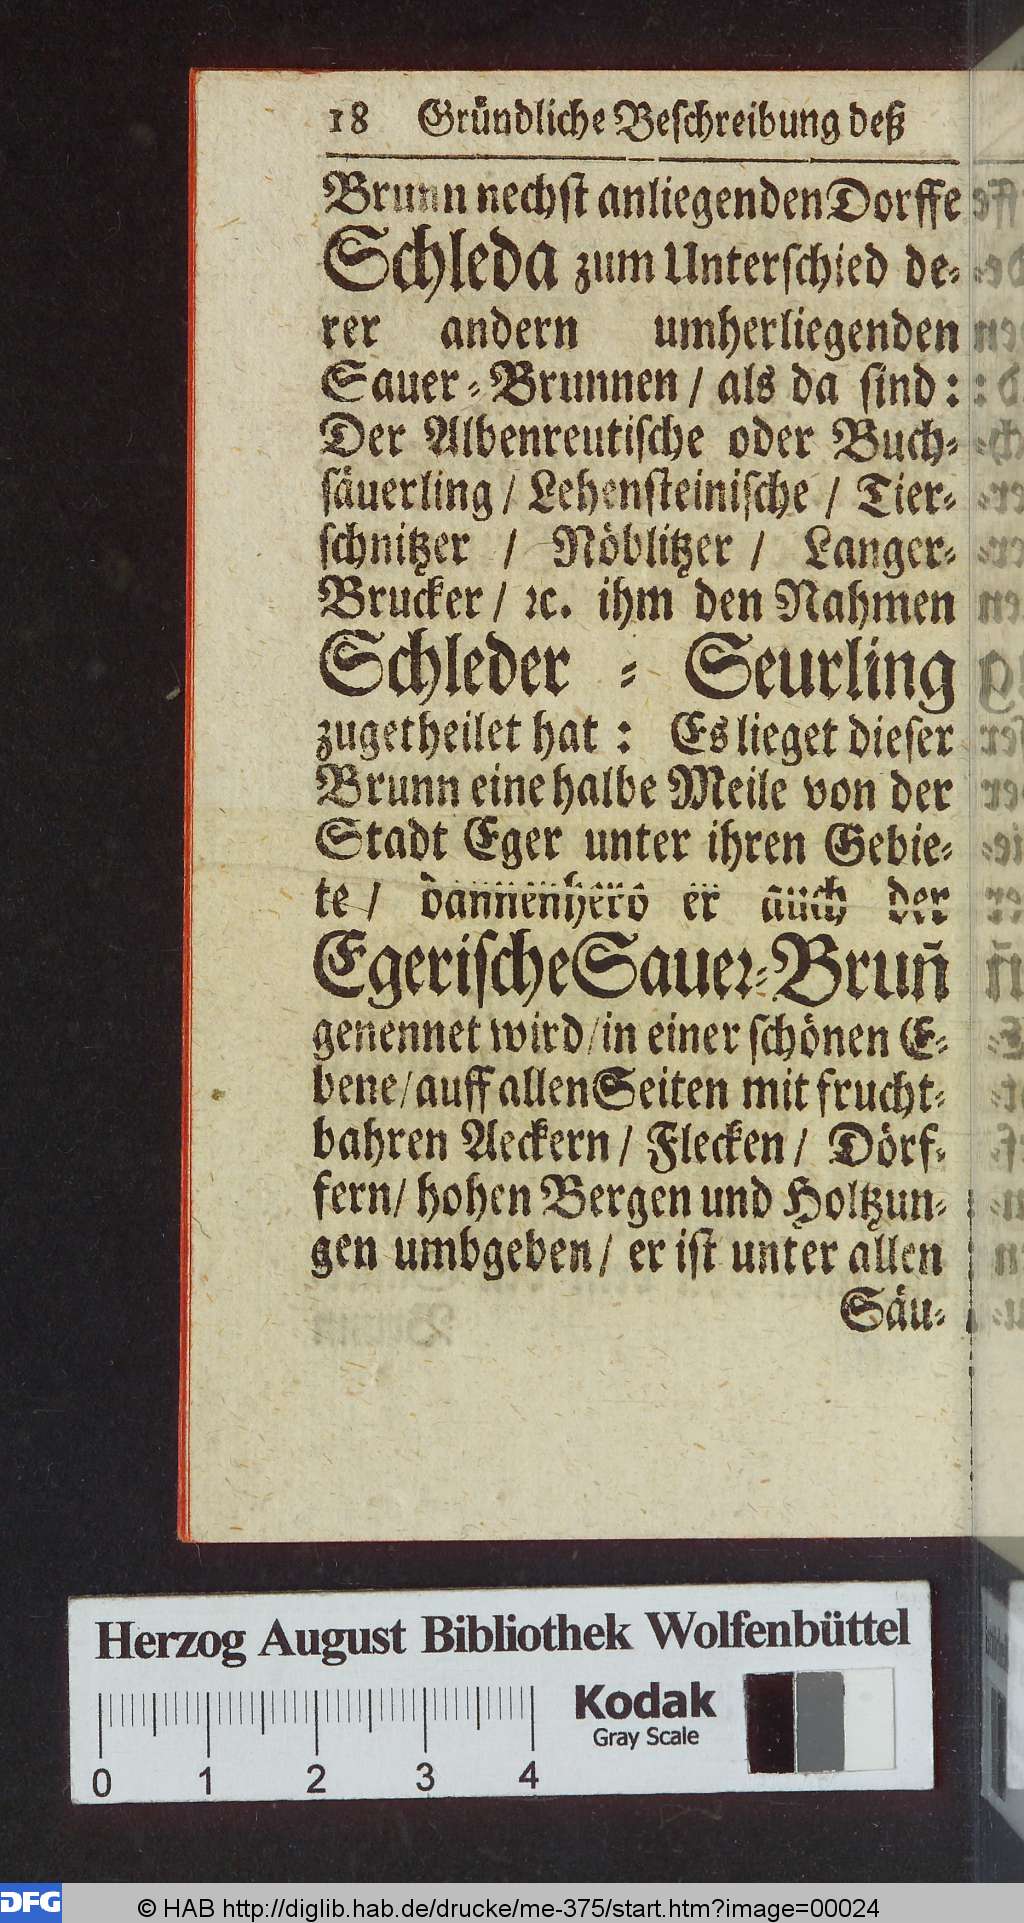 18 Gründliche Beschreibung deß
Brunn nechst anliegenden Dorffe
Schleda zum Unterschied de-
rer andern umherliegenden
Sauer-Brunnen / als da sind:
Der Albenreutische oder Buch-
säuerling / Lehensteinische / Tier-
schnitzer / Nöblitzer / Langer-
Brucker / ꝛc. ihm den Nahmen
Schleder-Seurling
zugetheilet hat: Es lieget dieser
Brunn eine halbe Meile von der
Stadt Eger unter ihren Gebie-
te / dannenhero er auch der
Egerische Sauer-Brun̄
genennet wird / in einer schönen E-
bene / auff allen Seiten mit frucht-
bahren Aeckern / Flecken / Dörf-
fern / hohen Bergen und Holtzun-
gen umbgeben / er ist unter allen
Säu-
Herzog August Bibliothek Wolfenbüttel
Kodak
Gray Scale
0 1 2 3 4
DFG © HAB http://diglib.hab.de/drucke/me-375/start.htm?image=00024